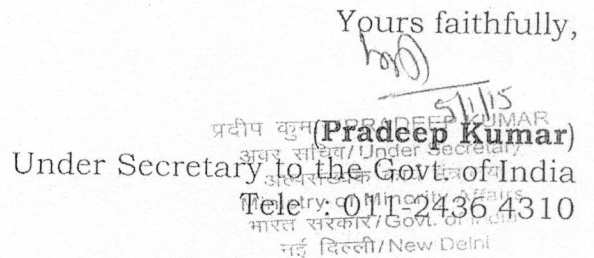 Yours faithfully,
5/1/15
प्रदीप कुमार/PRADEEP KUMAR
(Pradeep Kumar)
अवर सचिव/Under Secretary
Under Secretary to the Govt. of India
Ministry of Minority Affairs
Tele : 011-2436 4310
भारत सरकार/Govt. of India
नई दिल्ली/New Delhi